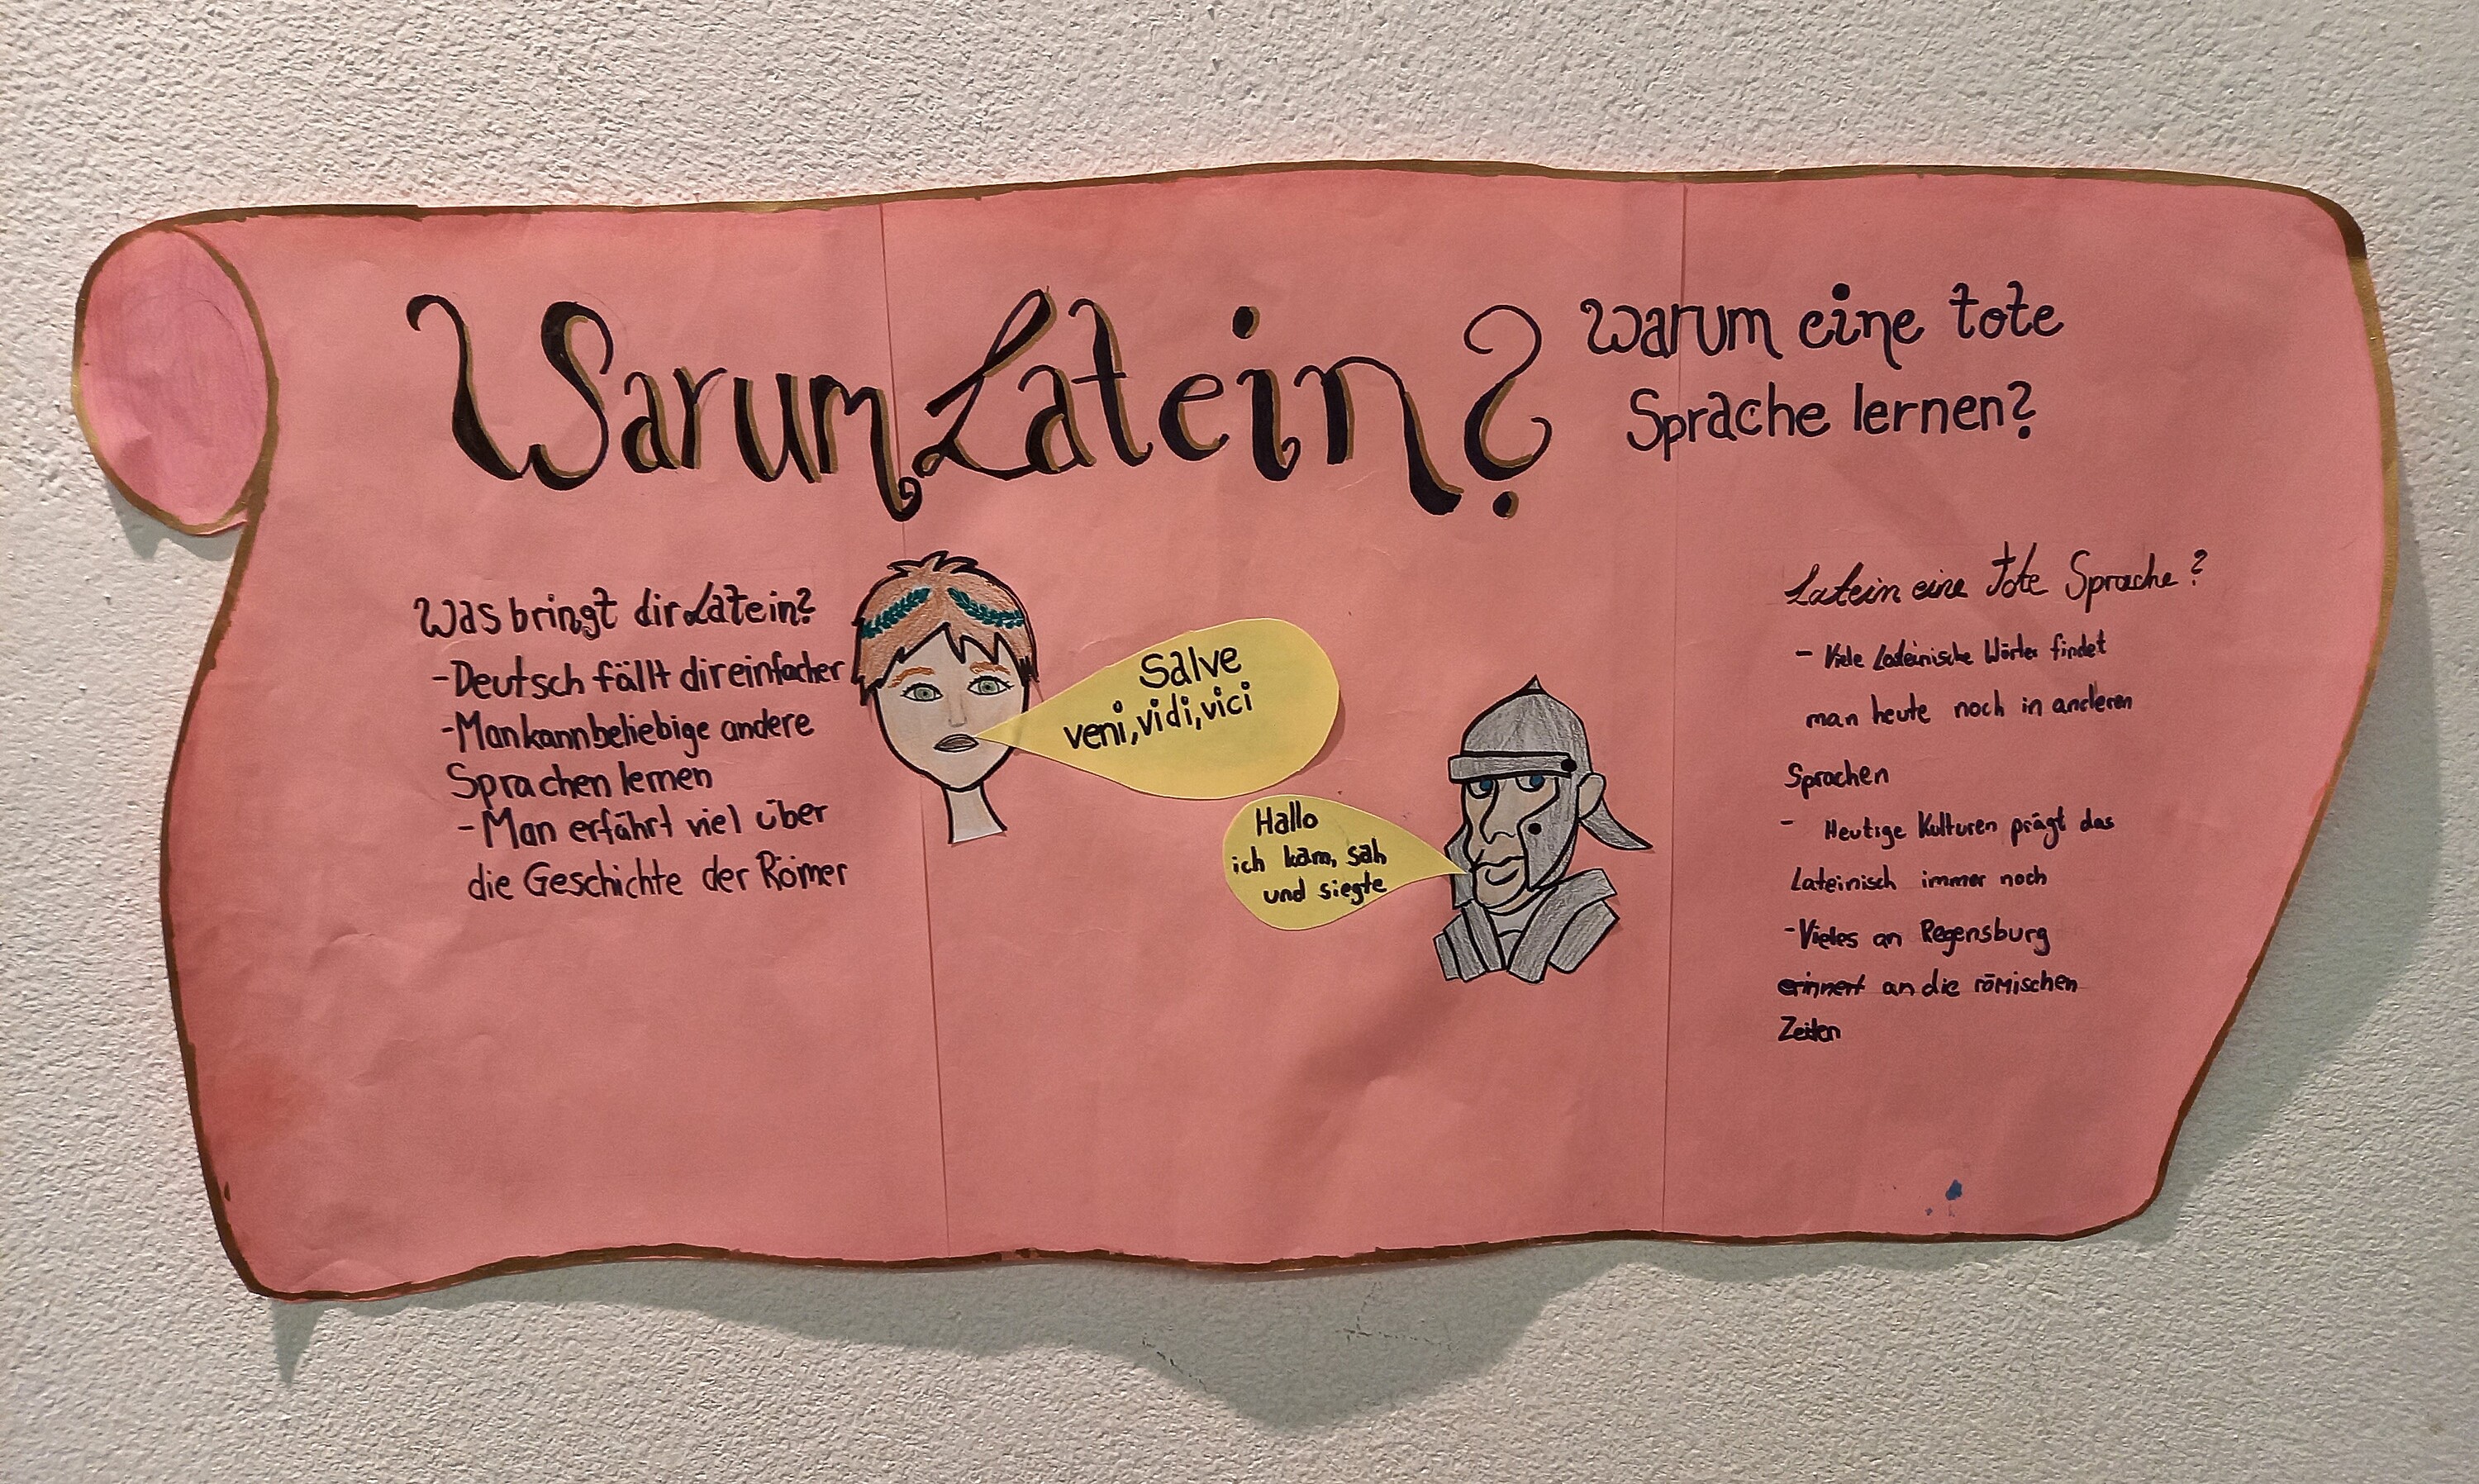 Warum Latein?
warum eine tote
Sprache lernen?
Was bringt dir Latein?
-Deutsch fällt dir einfacher
-Man kann beliebige andere
Sprachen lernen
-Man erfährt viel über
die Geschichte der Römer
Salve
veni, vidi, vici
Hallo
ich kam, sah
und siegte
Latein eine tote Sprache?
- Viele Lateinische Wörter findet
man heute noch in anderen
Sprachen
- Heutige Kulturen prägt das
Lateinisch immer noch
-Vieles an Regensburg
erinnert an die römischen
Zeiten